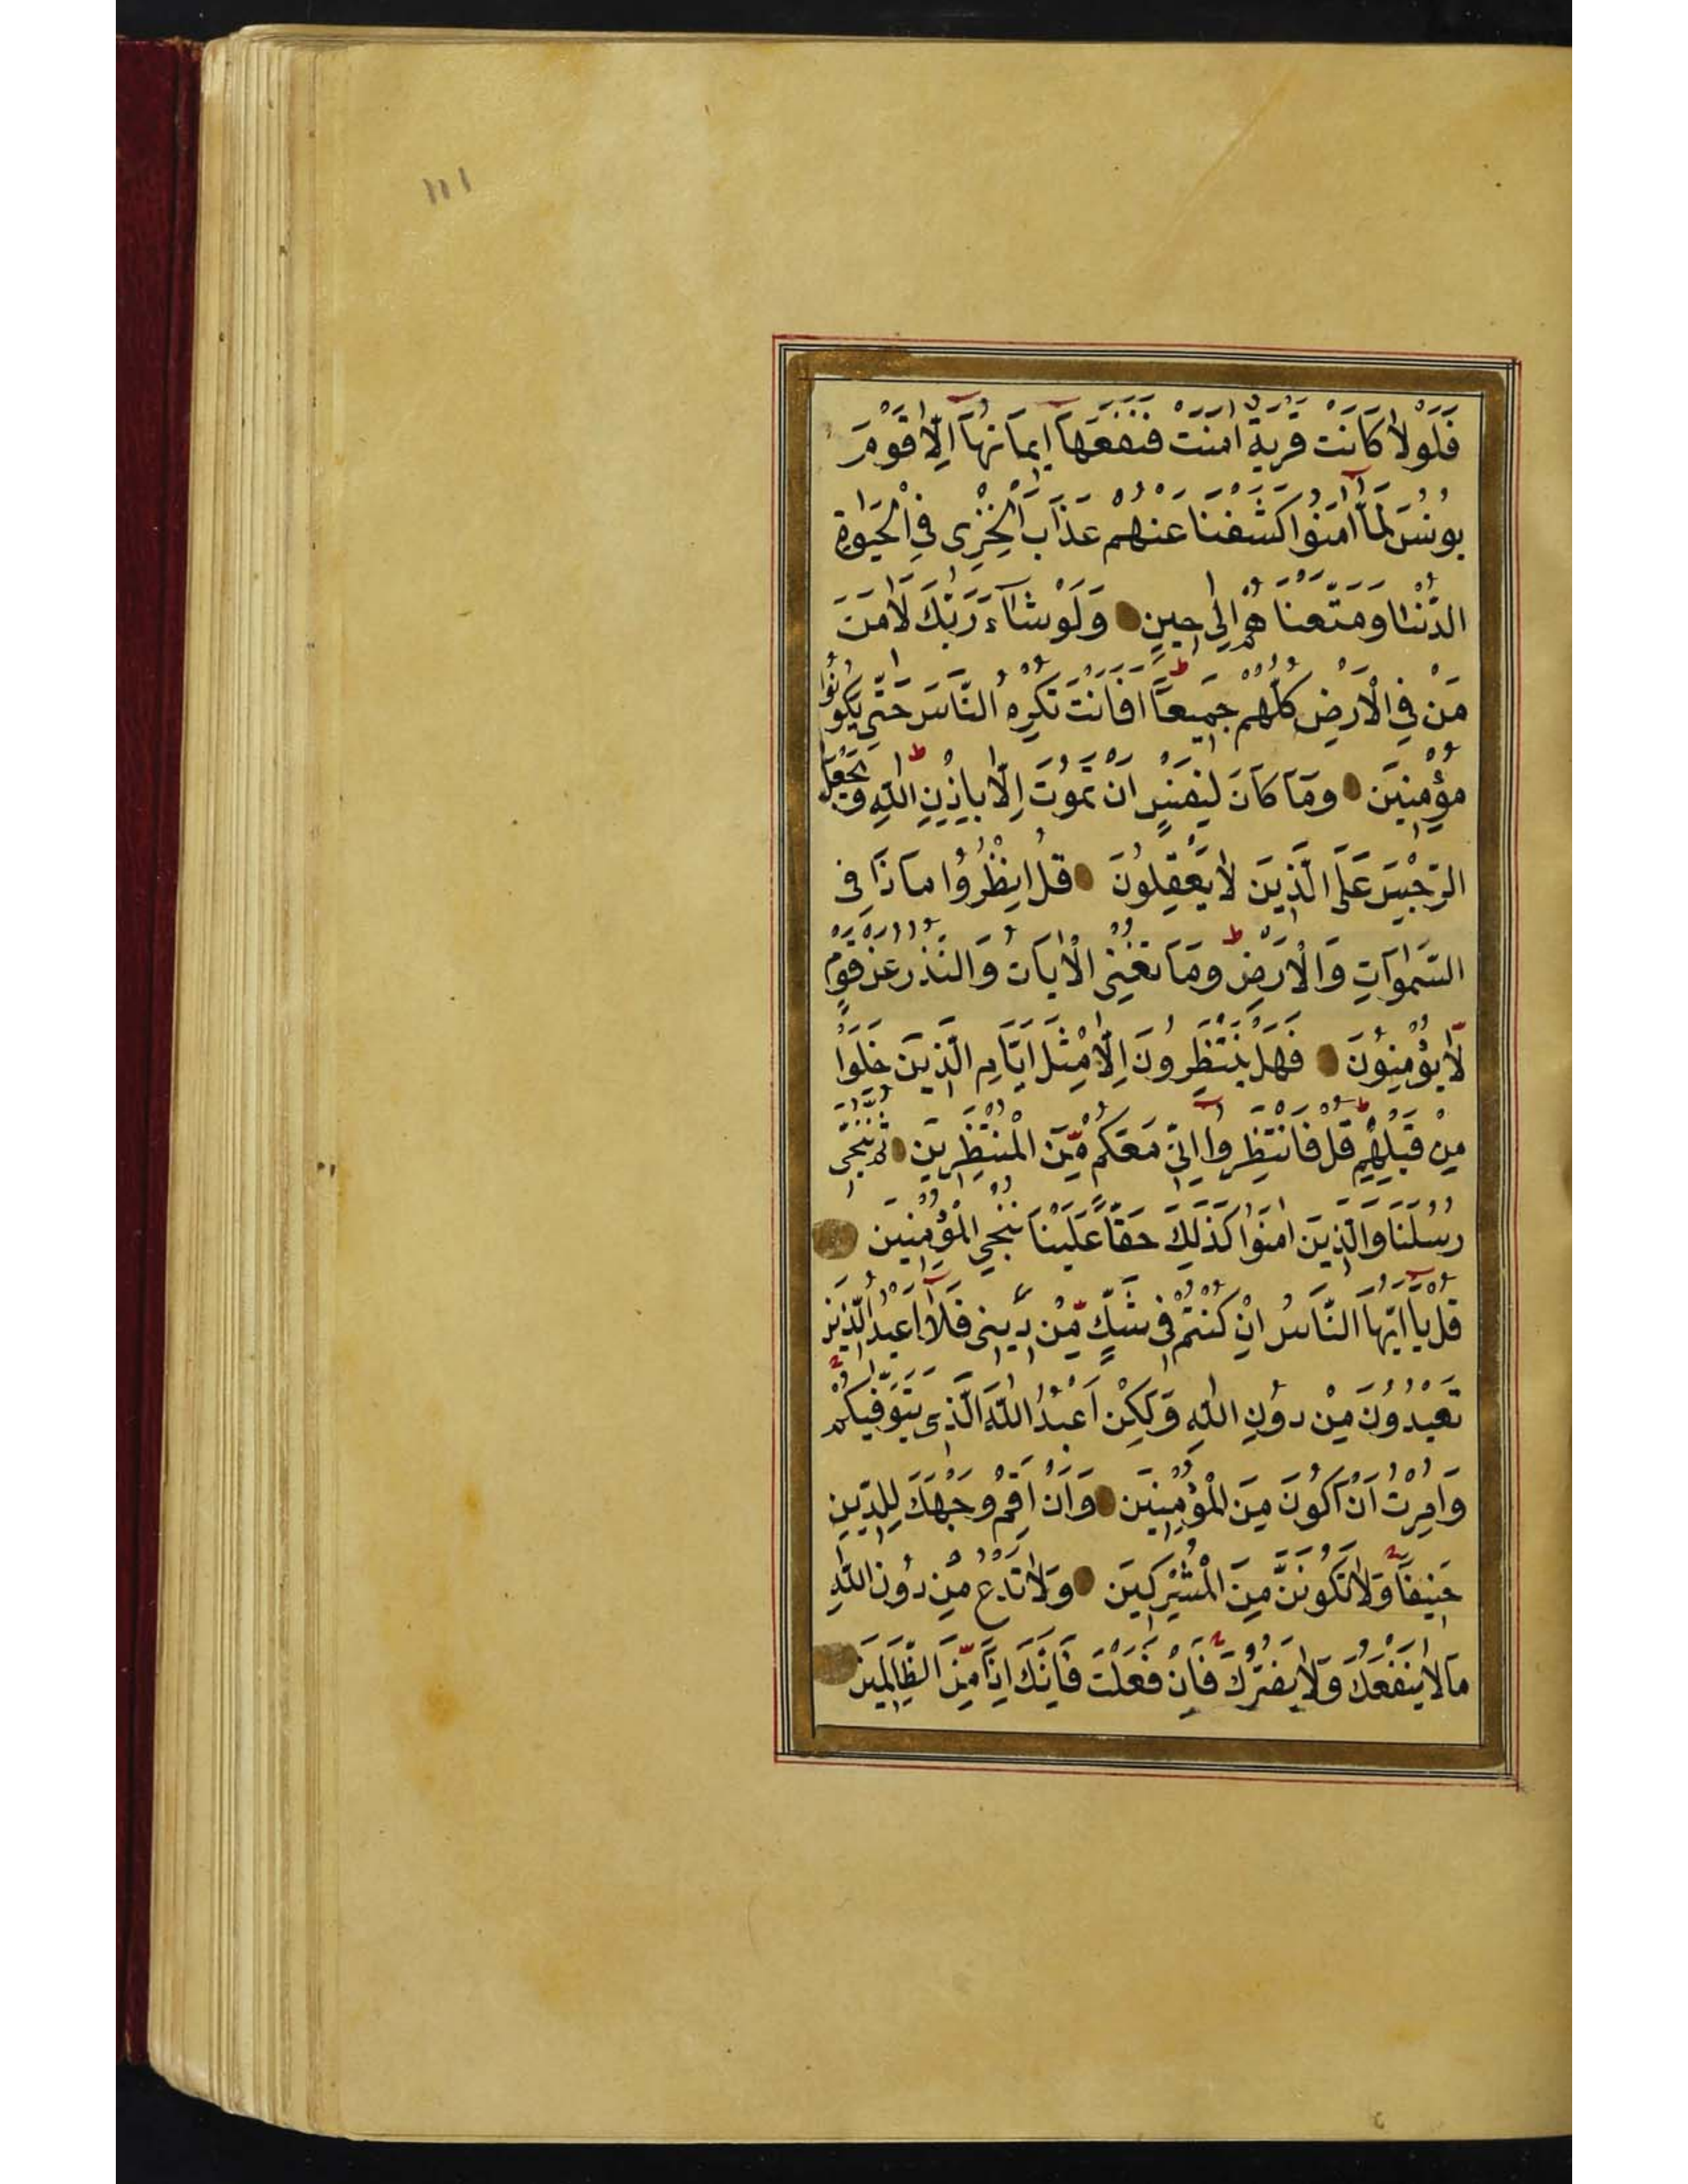 ١١١
فَلَوْلَا كَانَتْ قَرْيَةٌ اٰمَنَتْ فَنَفَعَهَٓا ا۪يمَانُهَٓا اِلَّا قَوْمَ
يُونُسَ لَمَّٓا اٰمَنُوا كَشَفْنَا عَنْهُمْ عَذَابَ الْخِزْىِ فِى الْحَيٰوةِ
الدُّنْيَا وَمَتَّعْنَاهُمْ اِلٰى ح۪ينٍ وَلَوْ شَٓاءَ رَبُّكَ لَاٰمَنَ
مَنْ فِى الْاَرْضِ كُلُّهُمْ جَم۪يعًا ط اَفَاَنْتَ تُكْرِهُ النَّاسَ حَتّٰى يَكُونُوا
مُؤْمِن۪ينَ وَمَا كَانَ لِنَفْسٍ اَنْ تَمُوتَ اِلَّا بِاِذْنِ اللّٰهِ ط وَيَجْعَلُ
الرِّجْسَ عَلَى الَّذ۪ينَ لَا يَعْقِلُونَ قُلِ انْظُرُوا مَاذَا فِى
السَّمٰوَاتِ وَالْاَرْضِ ط وَمَا تُغْنِى الْاٰيَاتُ وَالنُّذُرُ عَنْ قَوْمٍ
لَّا يُؤْمِنُونَ فَهَلْ يَنْتَظِرُونَ اِلَّا مِثْلَ اَيَّامِ الَّذ۪ينَ خَلَوْا
مِنْ قَبْلِهِمْ ط قُلْ فَانْتَظِرُٓوا اِنّ۪ى مَعَكُمْ مِّنَ الْمُنْتَظِر۪ينَ ثُمَّ نُنَجّ۪ى
رُسُلَنَا وَالَّذ۪ينَ اٰمَنُوا كَذٰلِكَ حَقًّا عَلَيْنَا نُنْجِى الْمُؤْمِن۪ينَ
قُلْ يَٓا اَيُّهَا النَّاسُ اِنْ كُنْتُمْ ف۪ى شَكٍّ مِّنْ د۪ين۪ى فَلَٓا اَعْبُدُ الَّذ۪ينَ
تَعْبُدُونَ مِنْ دُونِ اللّٰهِ وَلٰكِنْ اَعْبُدُ اللّٰهَ الَّذ۪ى يَتَوَفّٰيكُمْ
وَاُمِرْتُ اَنْ اَكُونَ مِنَ الْمُؤْمِن۪ينَ وَاَنْ اَقِمْ وَجْهَكَ لِلدّ۪ينِ
حَن۪يفًا وَلَا تَكُونَنَّ مِنَ الْمُشْرِك۪ينَ وَلَا تَدْعُ مِنْ دُونِ اللّٰهِ
مَا لَا يَنْفَعُكَ وَلَا يَضُرُّكَ فَاِنْ فَعَلْتَ فَاِنَّكَ اِذًا مِّنَ الظَّالِم۪ينَ